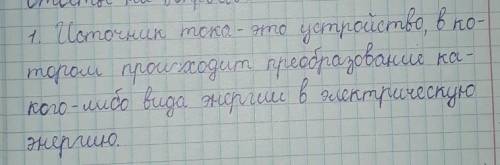 Ответы на вопро
1. Источник тока - это устройство, в ко-
тором происходит преобразование ка-
кого-либо вида энергии в электрическую
энергию.